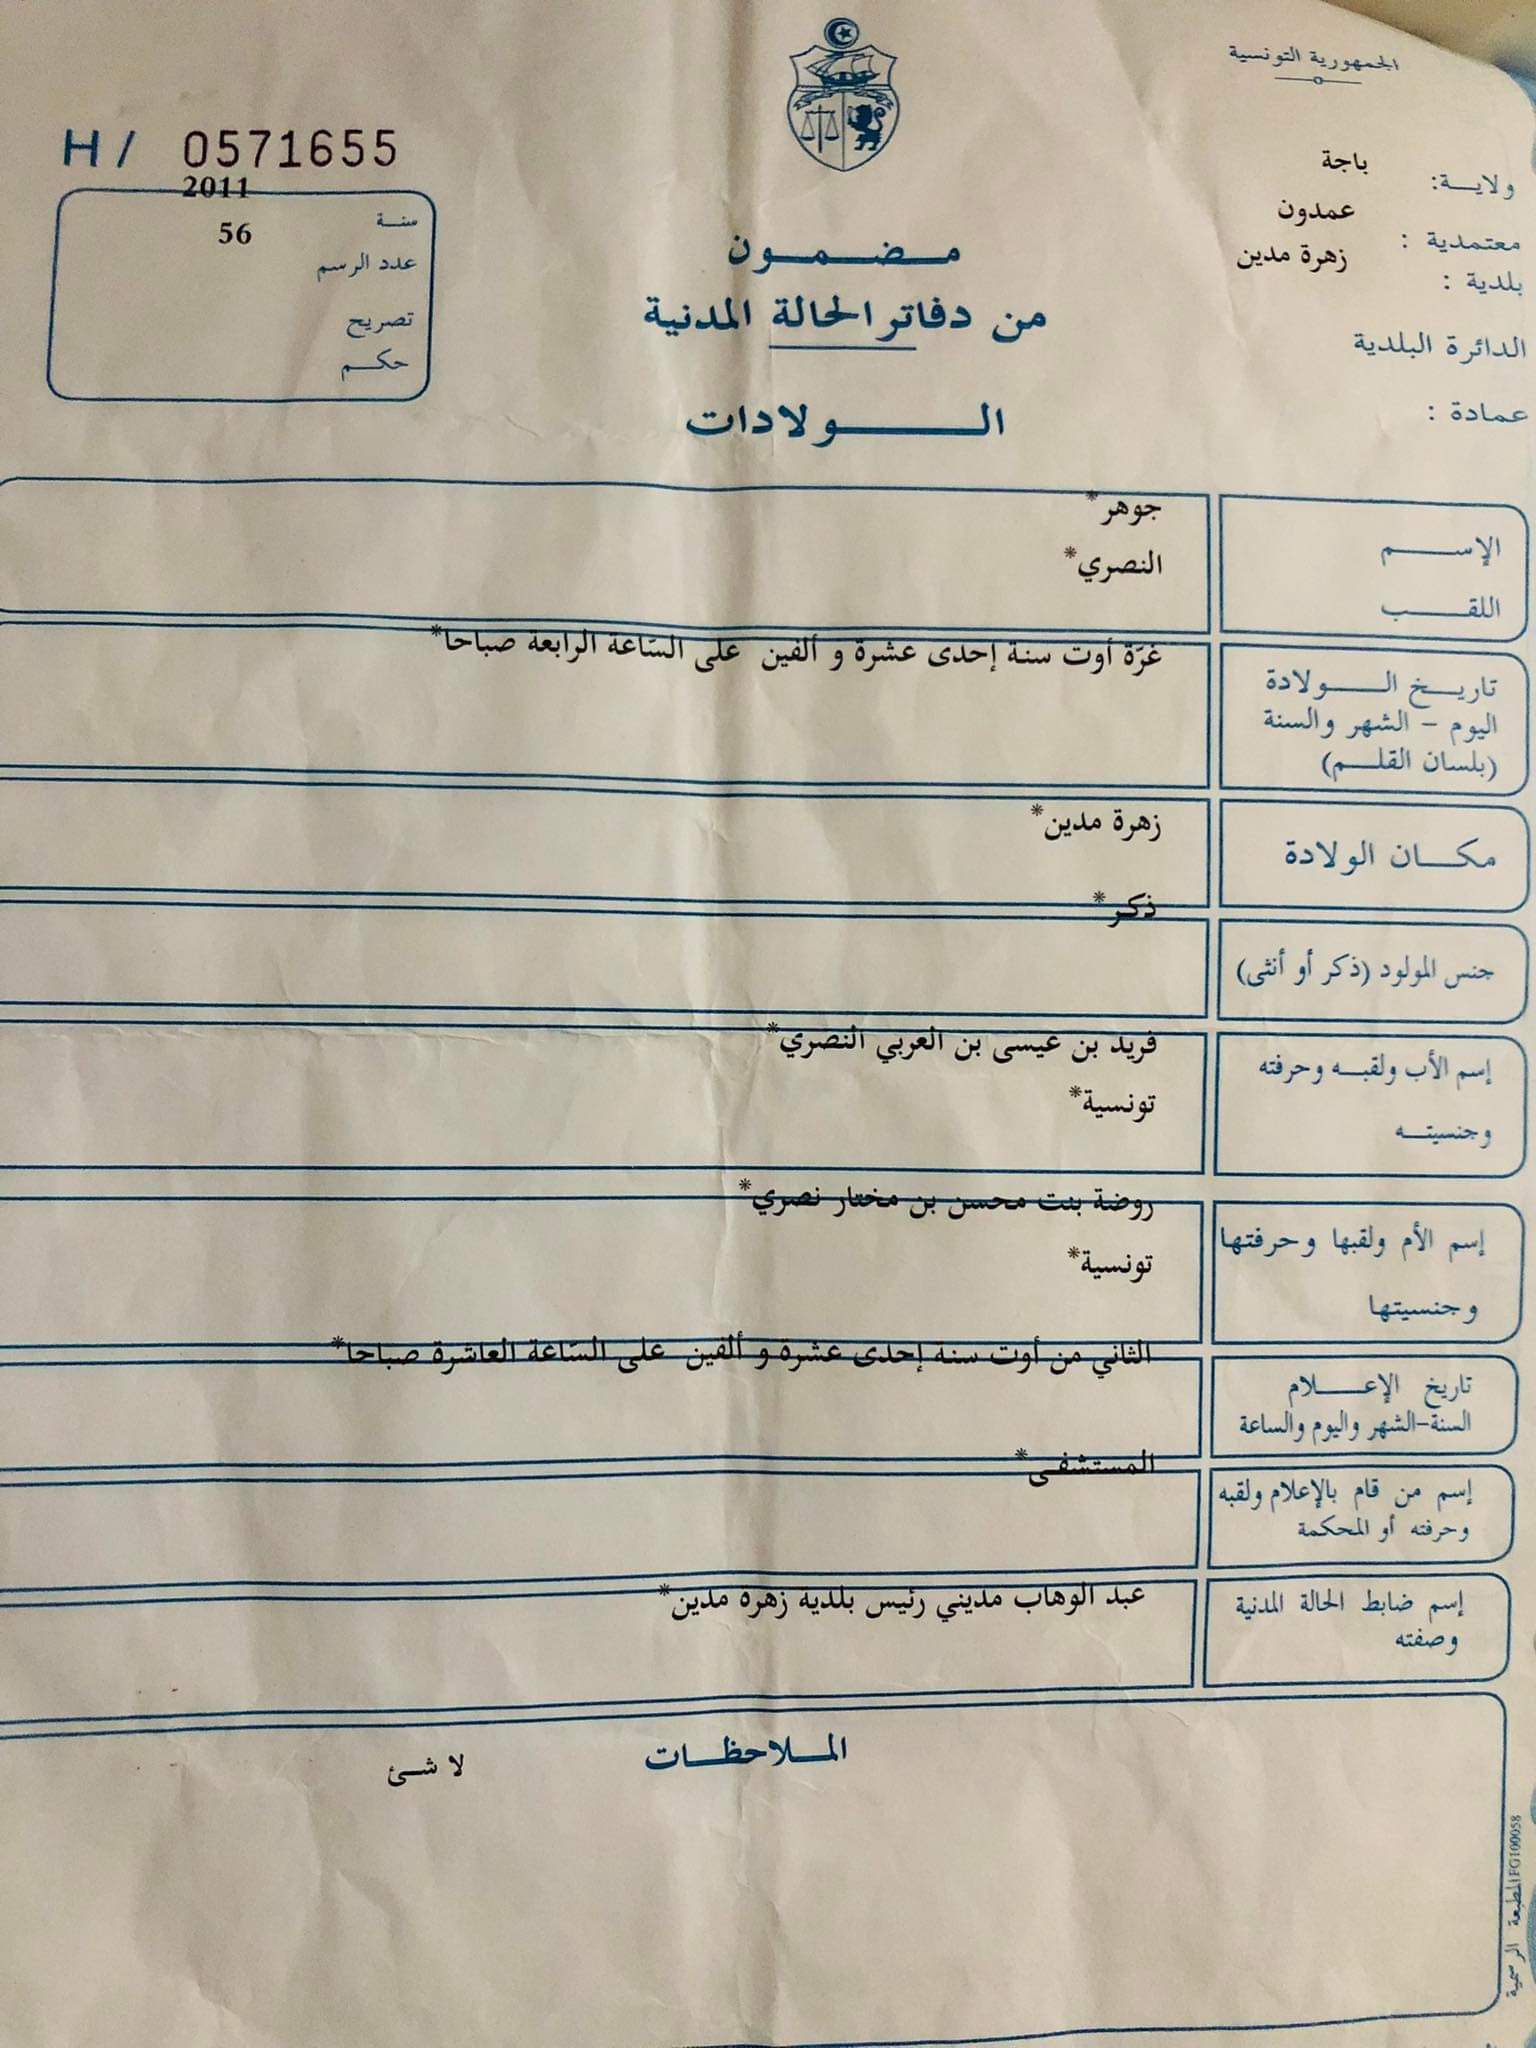 الجمهورية التونسية
ولاية: باجة
معتمدية : عمدون
بلدية : زهرة مدين
الدائرة البلدية
عمادة :
H/ 0571655
سنة 2011
عدد الرسم 56
تصريح
حكم
مضمون
من دفاتر الحالة المدنية
الولادات
الإسم جوهر*
اللقب النصري*
تاريخ الولادة غرّة أوت سنة إحدى عشرة و ألفين على السّاعة الرابعة صباحا*
اليوم - الشهر والسنة
(بلسان القلم)
مكان الولادة زهرة مدين*
جنس المولود (ذكر أو أنثى) ذكر*
إسم الأب ولقبه وحرفته فريد بن عيسى بن العربي النصري*
وجنسيته تونسية*
إسم الأم ولقبها وحرفتها روضة بنت محسن بن مختار نصري*
وجنسيتها تونسية*
تاريخ الإعلام الثاني من أوت سنة إحدى عشرة و ألفين على السّاعة العاشرة صباحا*
السنة-الشهر واليوم والساعة
إسم من قام بالإعلام ولقبه المستشفى*
وحرفته أو المحكمة
إسم ضابط الحالة المدنية عبد الوهاب مديني رئيس بلدية زهرة مدين*
وصفته
الملاحظات
لا شئ
المطبعة الرسمية FG100058